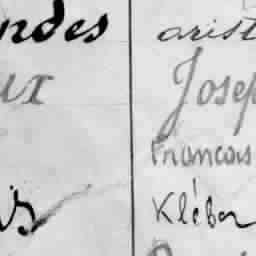 ndes arist
ux Josep
Francois
is Kléber